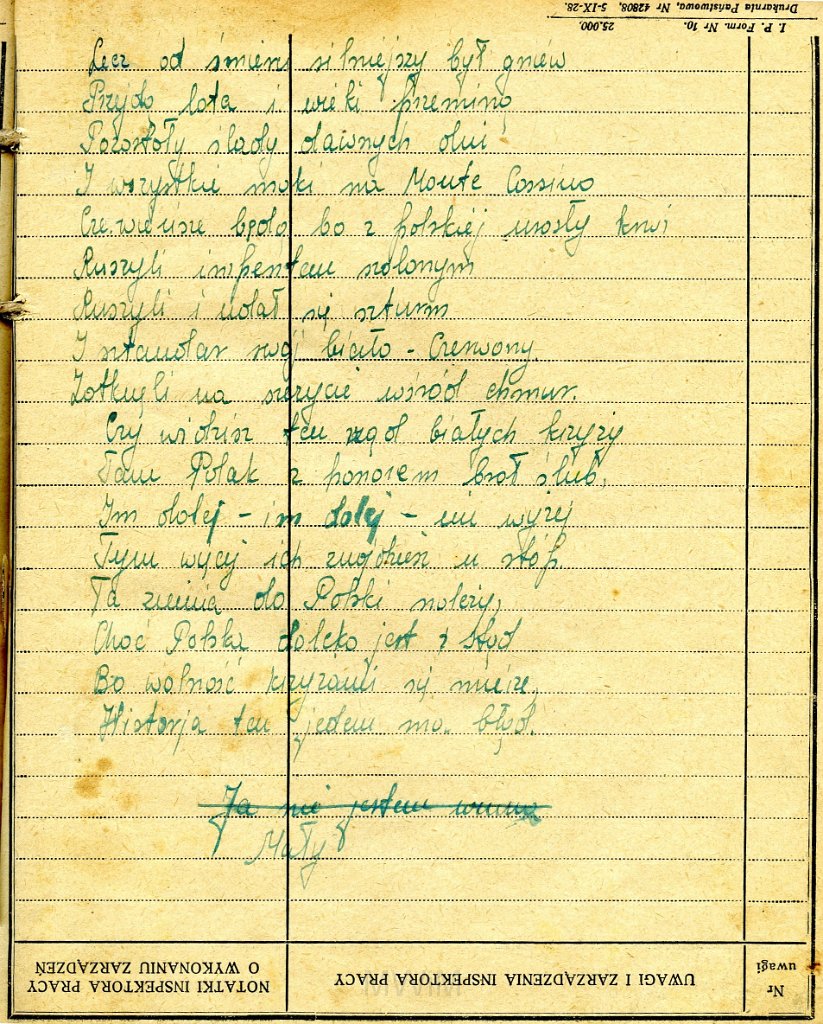 I. P. Form. Nr 10. 25.000.
Drukarnia Państwowa, Nr 42808, 5-IX-28.
Lecz od śmierci silniejszy był gniew
Przejdą lata i wieki przeminą
Pozostały ślady dawnych dni
I wszystkie maki na Monte Cassino
Czerwieńsze będą bo z polskiej wrosły krwi
Ruszyli impentem szalonym
Ruszyli i udał się szturm
I sztandar swój biało - Czerwony.
Zatknęli na szczycie wśród chmur.
Czy widzisz ten rząd białych krzyży
Tam Polak z honorem brał ślub,
Im dalej - im dalej - im wyżej
Tym więcej ich znajdzieś u stóp.
Ta ziemia do Polski należy,
Choć Polska daleko jest z stąd
Bo wolność krzyżami się mierzę,
Historja ten jeden ma błąd.
Ja nie jestem winna
Mały
NOTATKI INSPEKTORA PRACY O WYKONANIU ZARZĄDZEŃ
UWAGI I ZARZĄDZENIA INSPEKTORA PRACY
Nr uwagi